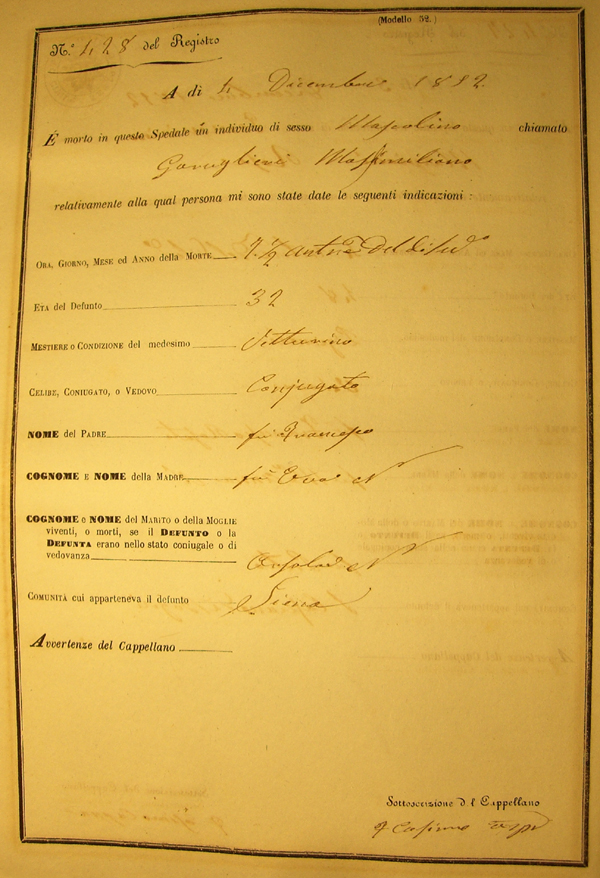 (Modello 52.)
N.° 428 del Registro
A di 4 Dicembre 1892
È morto in questo Spedale un individuo di sesso Mascolino chiamato
Massimiliano
relativamente alla qual persona mi sono state date le seguenti indicazioni :
ORA, GIORNO, MESE ed ANNO della MORTE
ETÀ del DEFUNTO 32
MESTIERE o CONDIZIONE del medesimo Vetturino
CELIBE, CONIUGATO, o VEDOVO Conjugato
NOME del PADRE fu Francesco
COGNOME E NOME della MADRE fu Eva N
COGNOME e NOME del MARITO o della MOGLIE
viventi, o morti, se il DEFUNTO o la
DEFUNTA erano nello stato coniugale o di
vedovanza Orsola N
COMUNITÀ cui apparteneva il defunto Siena
Avvertenze del Cappellano
Sottoscrizione d l Cappellano